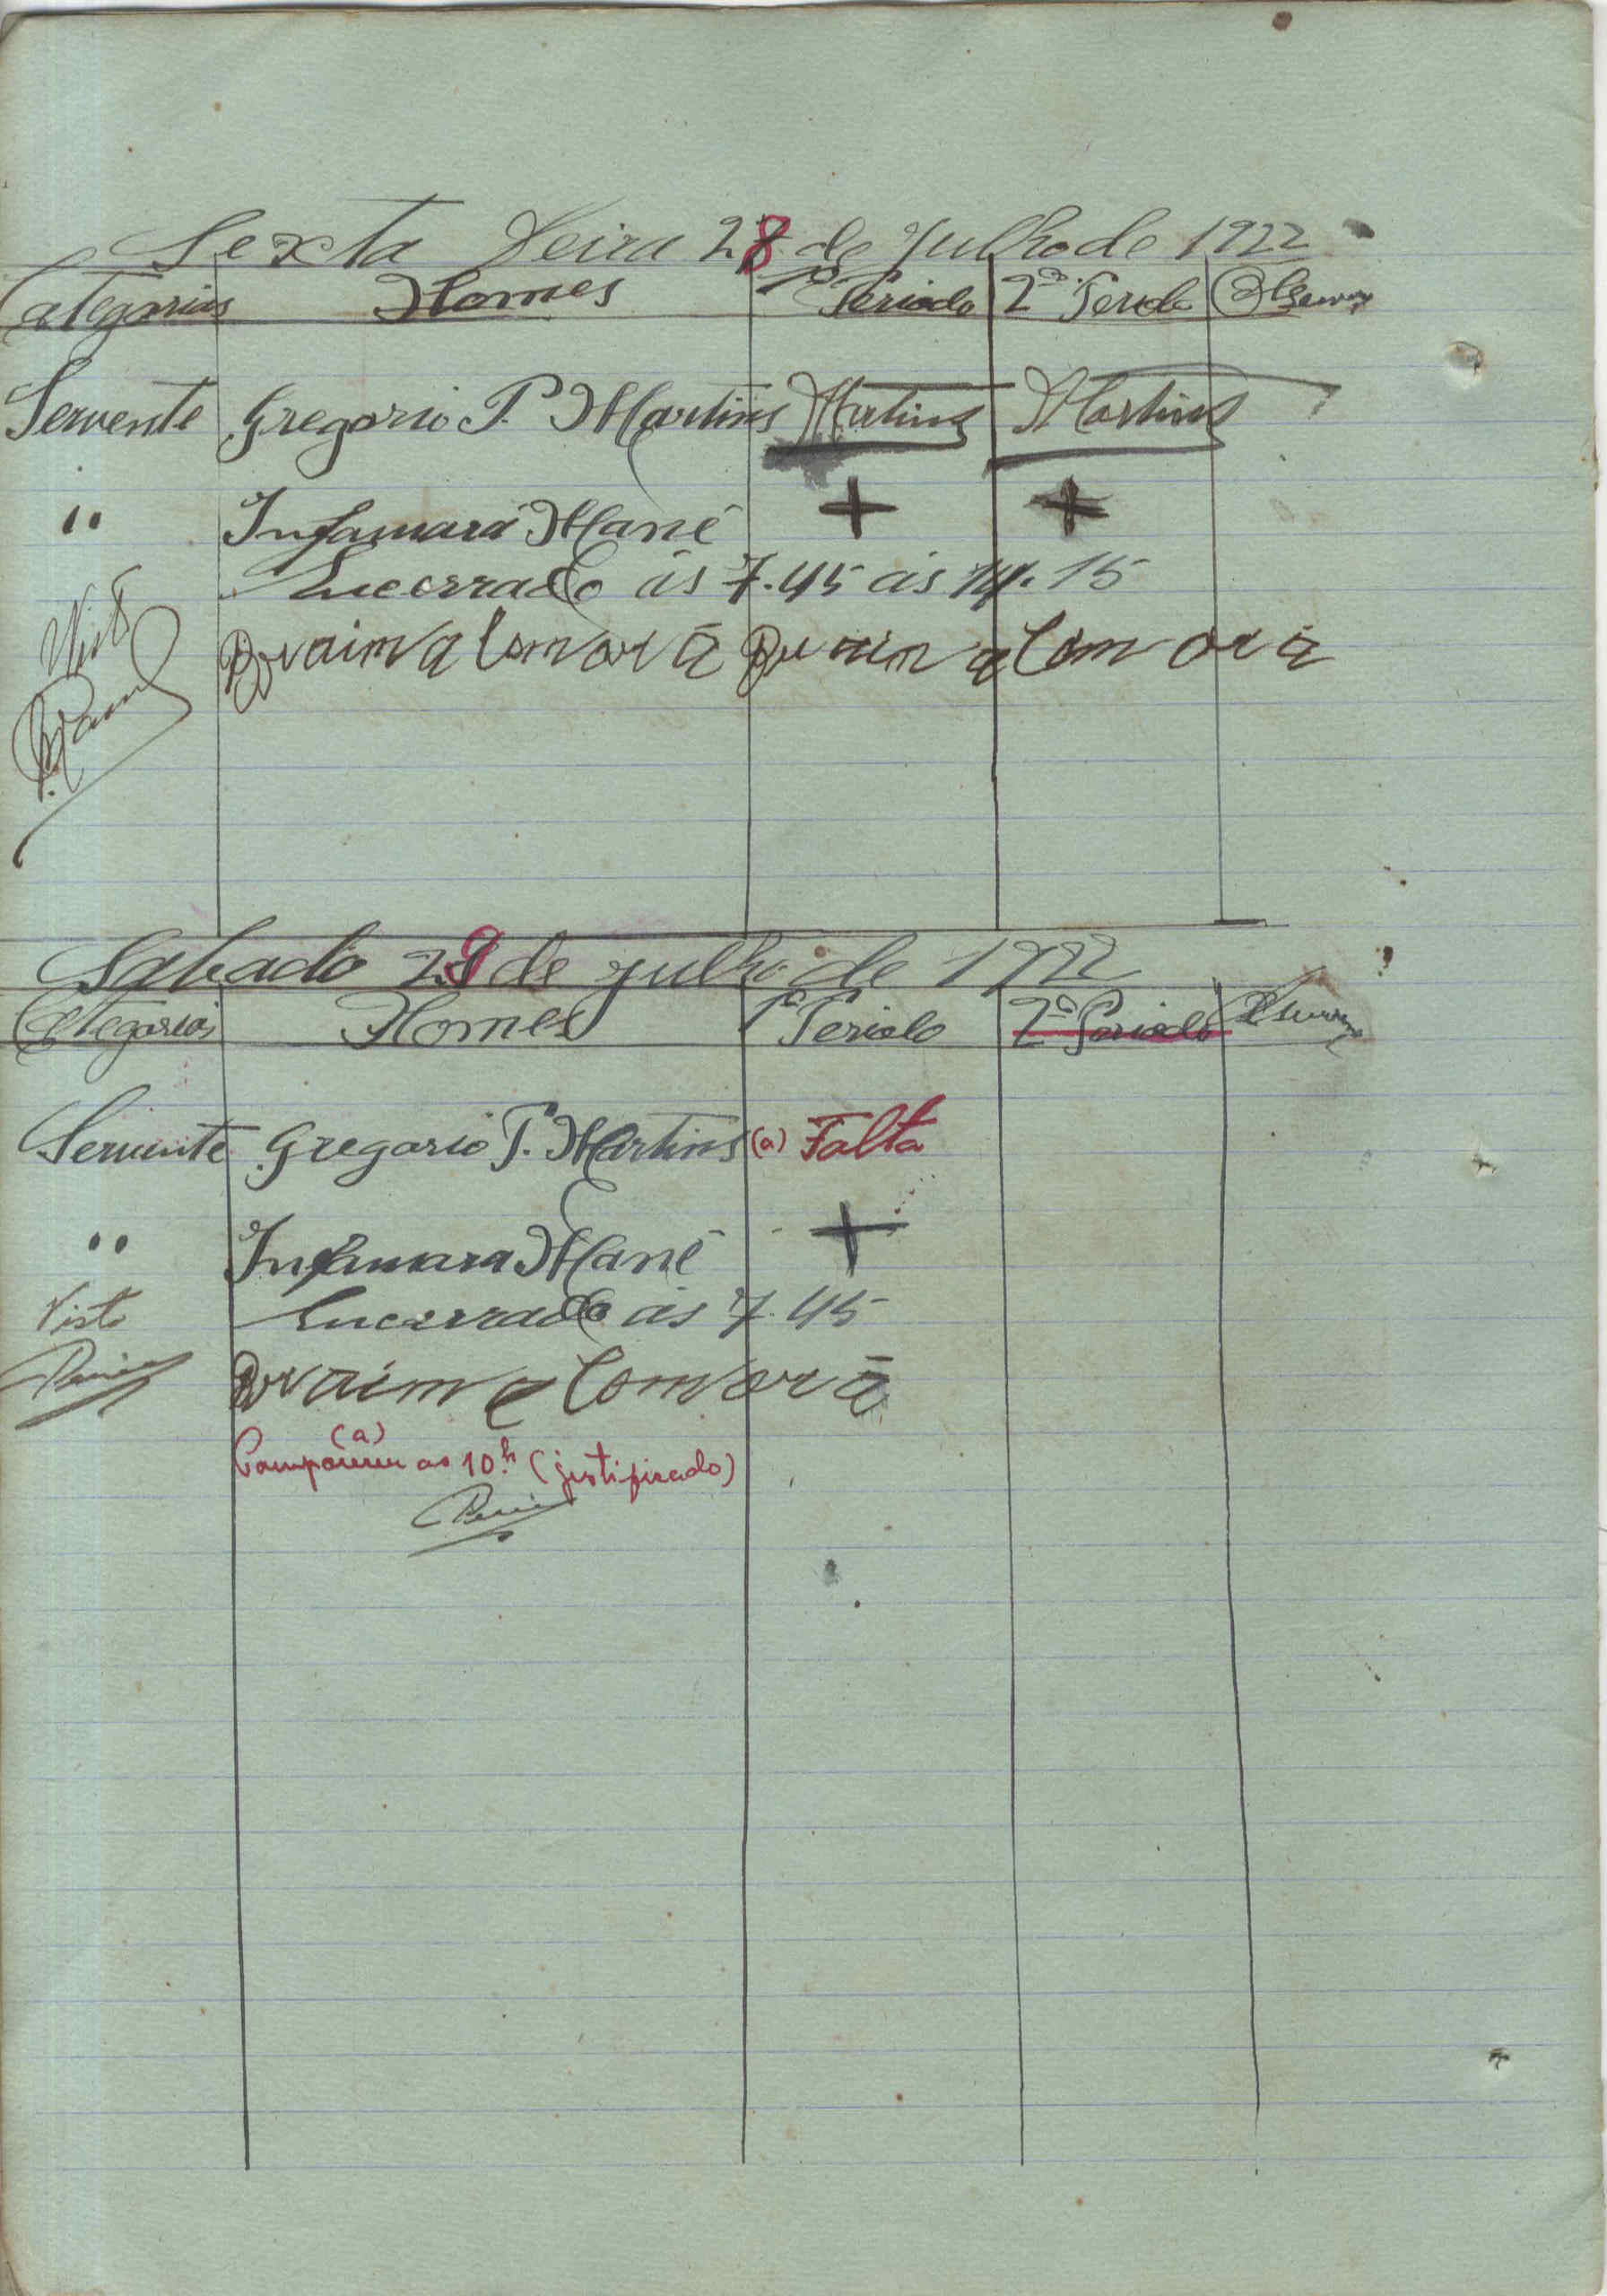 Sexta Feira 28 de Julho de 1922
Categorias Nomes 1º Periodo 2º Periodo Observ
Servente Gregorio P. Martins Martins Martins
" Infamará Mané + +
Encerrado ás 7.45 ás 14.15
Visto Braima Comará Braima Comará
Sabado 29 de julho de 1922
Categorias Nomes 1º Periodo 2º Periodo
Servente Gregorio P. Martins (a) Falta
" Infamara Mané +
Visto Encerrado ás 7.45
Braima Comorá
(a)
Compareceu as 10h. (justificado)